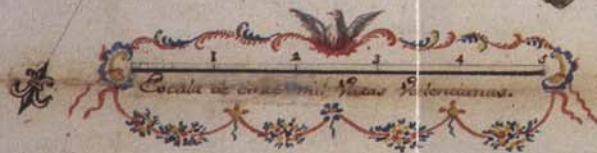 1 2 3 4 5
Escala de cinco mil Varas Valencianas.